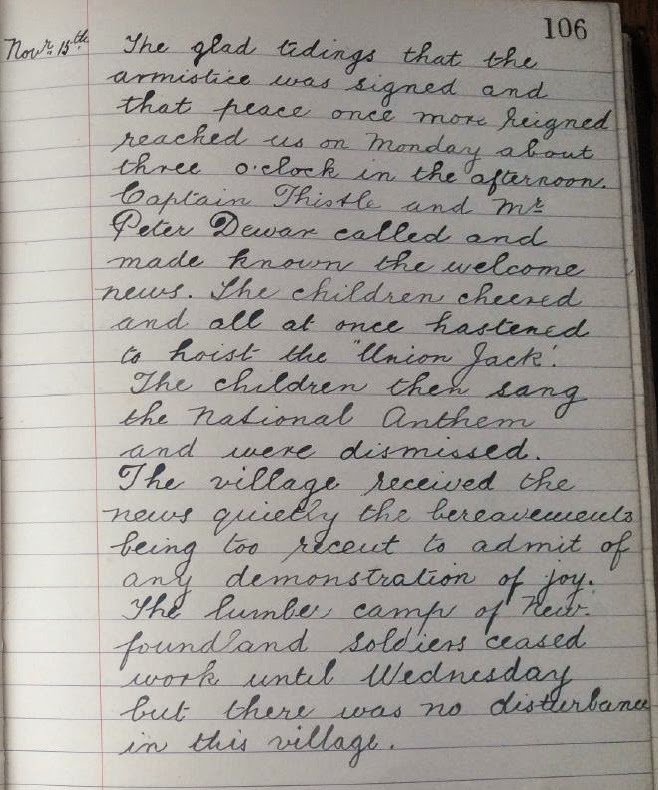 106
Novr. 15th. The glad tidings that the
armistice was signed and
that peace once more reigned
reached us on Monday about
three o'clock in the afternoon.
Captain Thistle and Mr.
Peter Dewar called and
made known the welcome
news. The children cheered
and all at once hastened
to hoist the "Union Jack'.
The children then sang
the National Anthem
and were dismissed.
The village received the
news quietly the bereavements
being too recent to admit of
any demonstration of joy.
The lumber camp of New-
foundland soldiers ceased
work until Wednesday
but there was no disturbance
in this village.